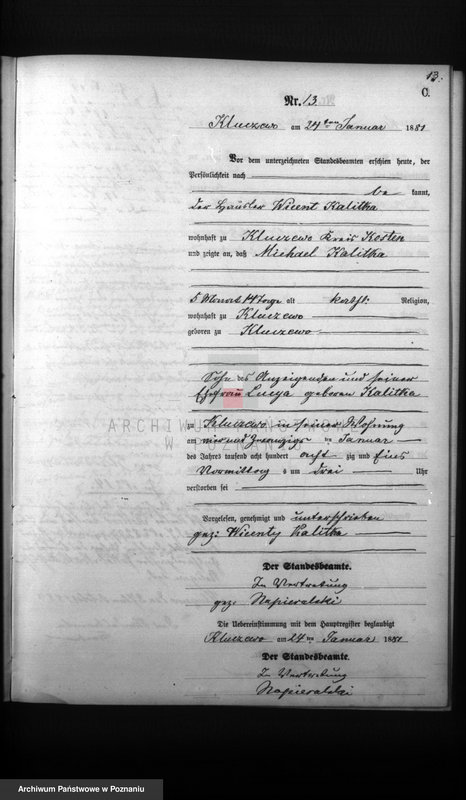 13.
C.
Nr. 13.
Kluczewo am 24ten Januar 1881
Vor dem unterzeichneten Standesbeamten erschien heute, der
Persönlichkeit nach
be kannt,
der Häusler Wicent Kalitka
wohnhaft zu Kluczewo Kreis Kosten
und zeigte an, daß Michael Kalitka
5 Monat 14 Tage alt kathl: Religion,
wohnhaft zu Kluczewo
geboren zu Kluczewo
Sohn des Anzeigenden und seiner
Ehefrau Lucya geboren Kalitka
ARCHIWUM
zu Kluczewo in seiner Wohnung
am vierundzwanzigs ten Januar
des Jahres tausend acht hundert acht zig und Eins
Vormittag s um drei Uhr
verstorben sei
Vorgelesen, genehmigt und unterschrieben
gez: Wicenty Kalitka
Der Standesbeamte.
In Vertretung
gez: Napieralski
Die Uebereinstimmung mit dem Hauptregister beglaubigt
Kluczewo am 24 ten Januar 1881
Der Standesbeamte.
In Vertretung
Napieralski
Archiwum Państwowe w Poznaniu